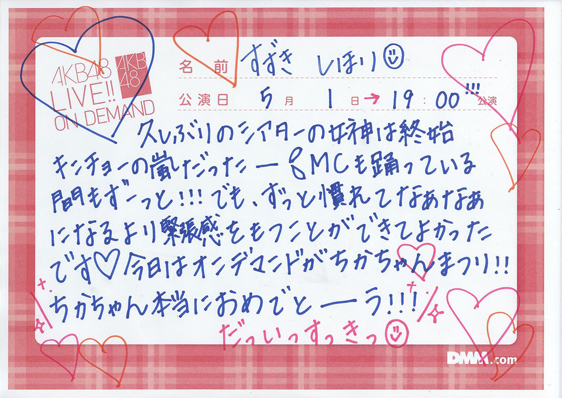 AKB48
LIVE!!
ON DEMAND
AKB
48
名 前 すずき しほり
公演日 5月 1日→19:00!!!公演
久しぶりのシアターの女神は終始
キンチョーの嵐だったー8MCも踊っている
間もずーっと!!!でも、ずっと慣れてなぁなぁ
になるより緊張感をもつことができてよかった
です♡今日はオンデマンドがちかちゃんまつり!!
ちかちゃん本当におめでとーう!!!
だっいっすっきっ
DMM.com